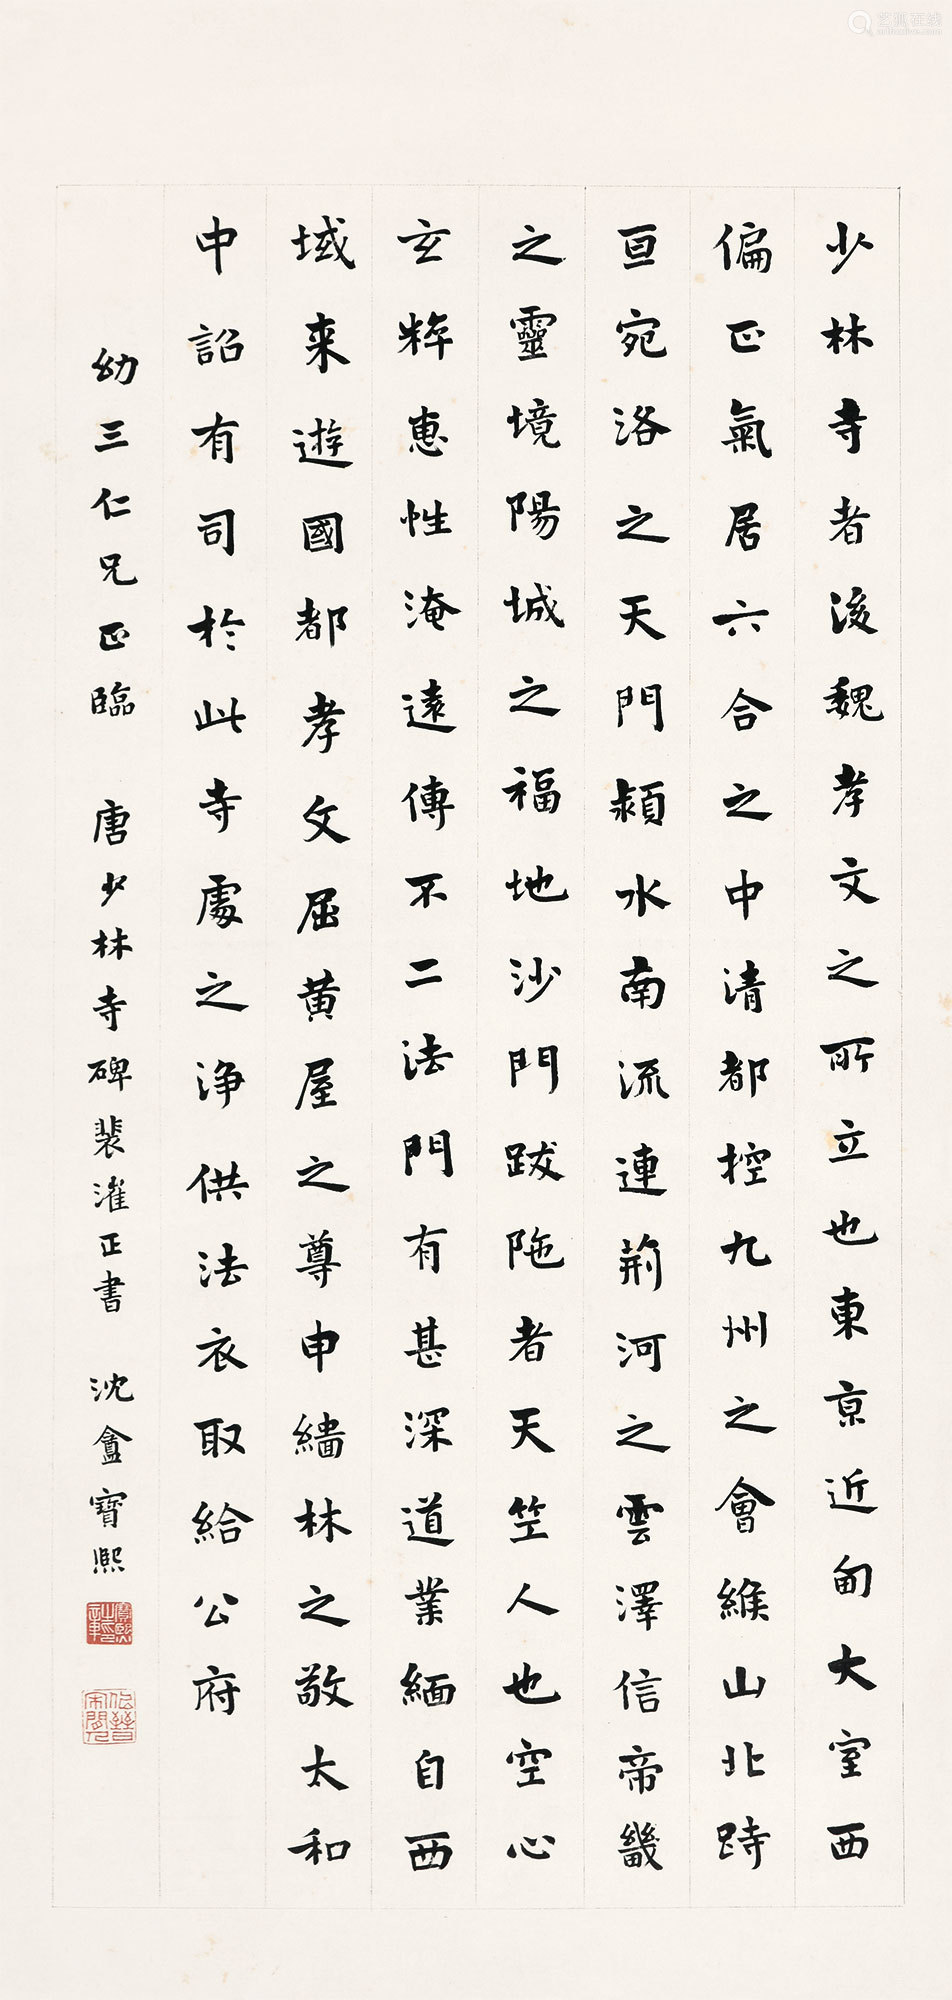 少林寺者後魏孝文之所立也東京近甸大室西
偏正氣居六合之中清都控九州之會維山北跱
亘宛洛之天門潁水南流連荊河之雲澤信帝畿
之靈境陽城之福地沙門跋陁者天竺人也空心
玄粹惠性淹遠傳不二法門有甚深道業緬自西
域来遊國都孝文屈黃屋之尊申緇林之敬太和
中詔有司於此寺處之淨供法衣取給公府
幼三仁兄正臨 唐少林寺碑裴漼正書 沈盦寶熙
寶熙之印章
艺狐在线
artfoxlive.com